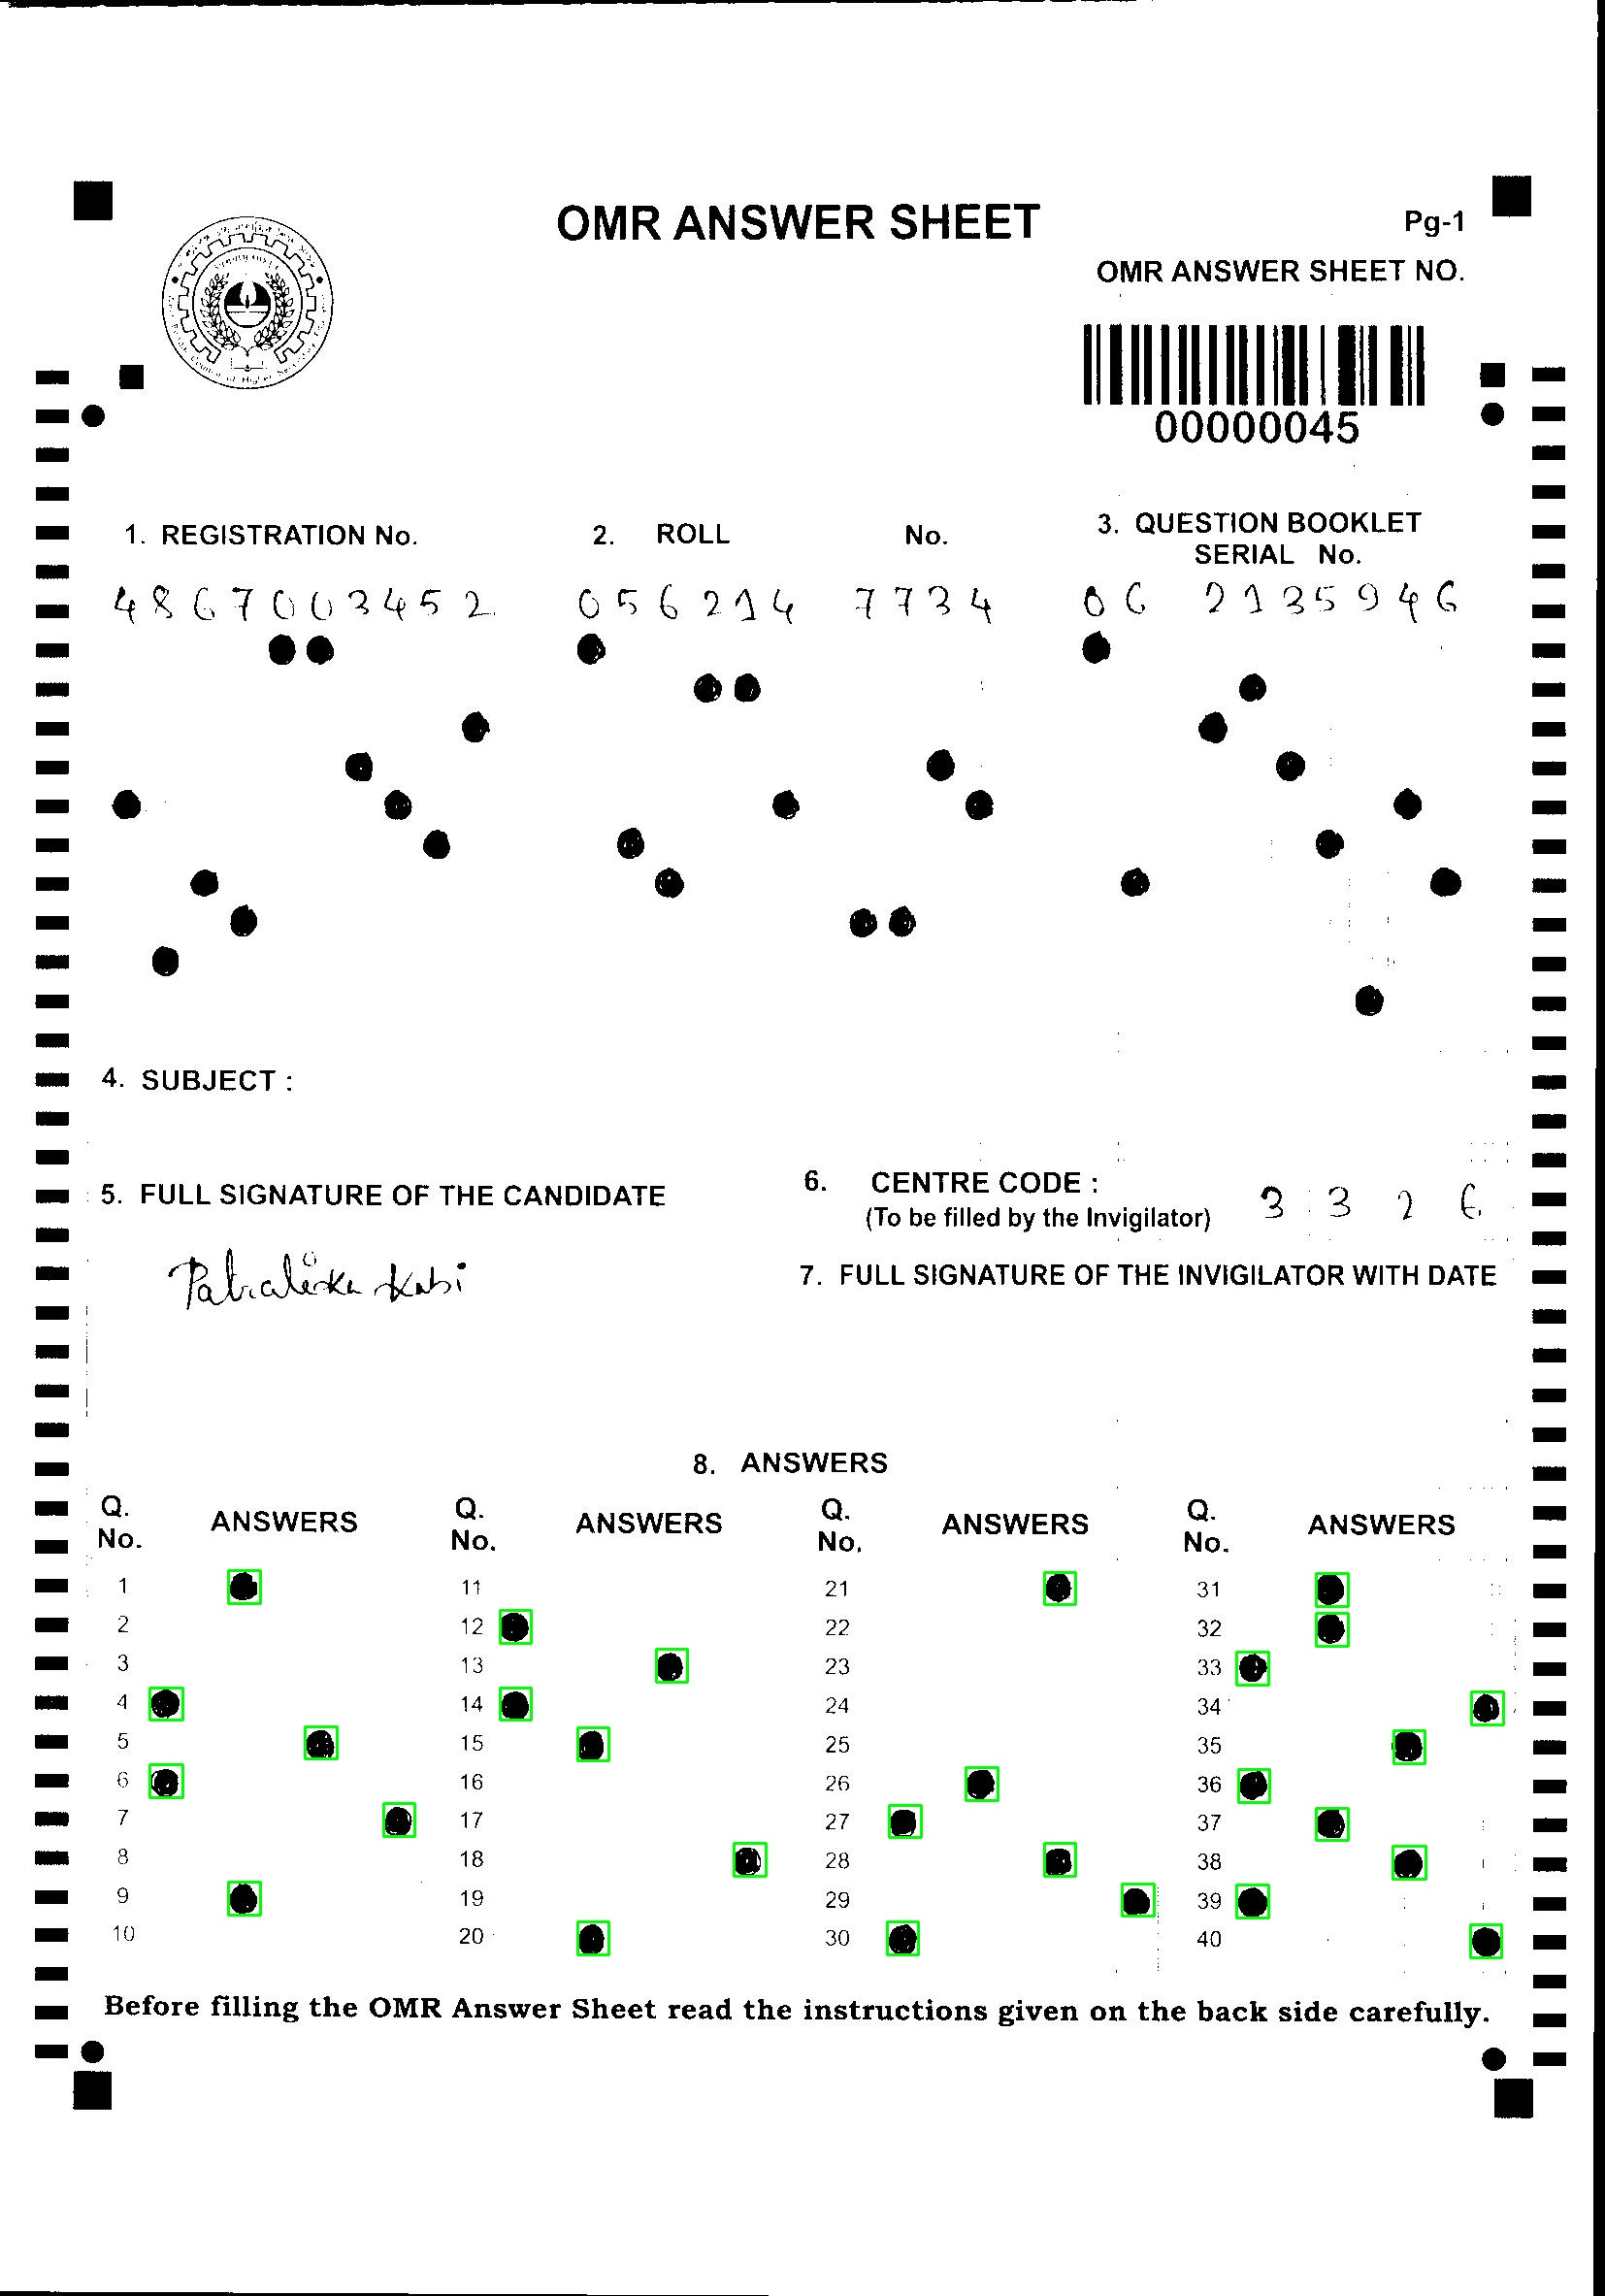 OMR ANSWER SHEET
Pg-1
OMR ANSWER SHEET NO.
00000045
1. REGISTRATION No.
2. ROLL No.
3. QUESTION BOOKLET
SERIAL No.
4867003452 056214 7734 06 2135946
4. SUBJECT :
5. FULL SIGNATURE OF THE CANDIDATE
6. CENTRE CODE : 3 3 2 6
(To be filled by the Invigilator)
7. FULL SIGNATURE OF THE INVIGILATOR WITH DATE
8. ANSWERS
Q. No. ANSWERS Q. No. ANSWERS Q. No. ANSWERS Q. No. ANSWERS
1 11 21 31
2 12 22 32
3 13 23 33
4 14 24 34
5 15 25 35
6 16 26 36
7 17 27 37
8 18 28 38
9 19 29 39
10 20 30 40
Before filling the OMR Answer Sheet read the instructions given on the back side carefully.